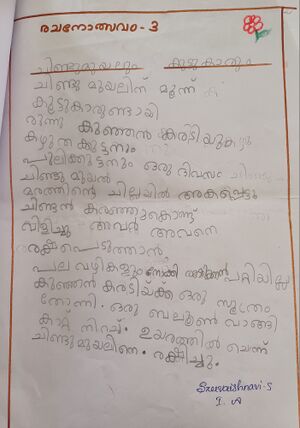 രചനോത്സവം - 3
ചിണ്ടുമുയലും കൂട്ടുകാരും
ചിണ്ടു മുയലിന് മൂന്ന്
കൂട്ടുകാരുണ്ടായി
രുന്നു കുഞ്ഞൻ കരടിയും
കഴുത കുട്ടനും
പുലിക്കുട്ടനും ഒരു ദിവസം
ചിണ്ടു മുയൽ
മരത്തിന്റെ ചില്ലയിൽ അകപ്പെട്ടു
കരഞ്ഞുകൊണ്ട്
വിളിച്ചു അവർ അവനെ
രക്ഷപെടുത്താൻ
പല വഴികളും നോക്കി പറ്റിയില്ല
കുഞ്ഞൻ കരടിയ്ക്ക് ഒരു സൂത്രം
തോന്നി. ഒരു ബലൂൺ വാങ്ങി
കാറ്റ് നിറച്ച്. ഉയരത്തിൽ ചെന്ന്
ചിണ്ടുമുയലിനെ. രക്ഷിച്ചു.
Sreevaishnavi-S
I. A